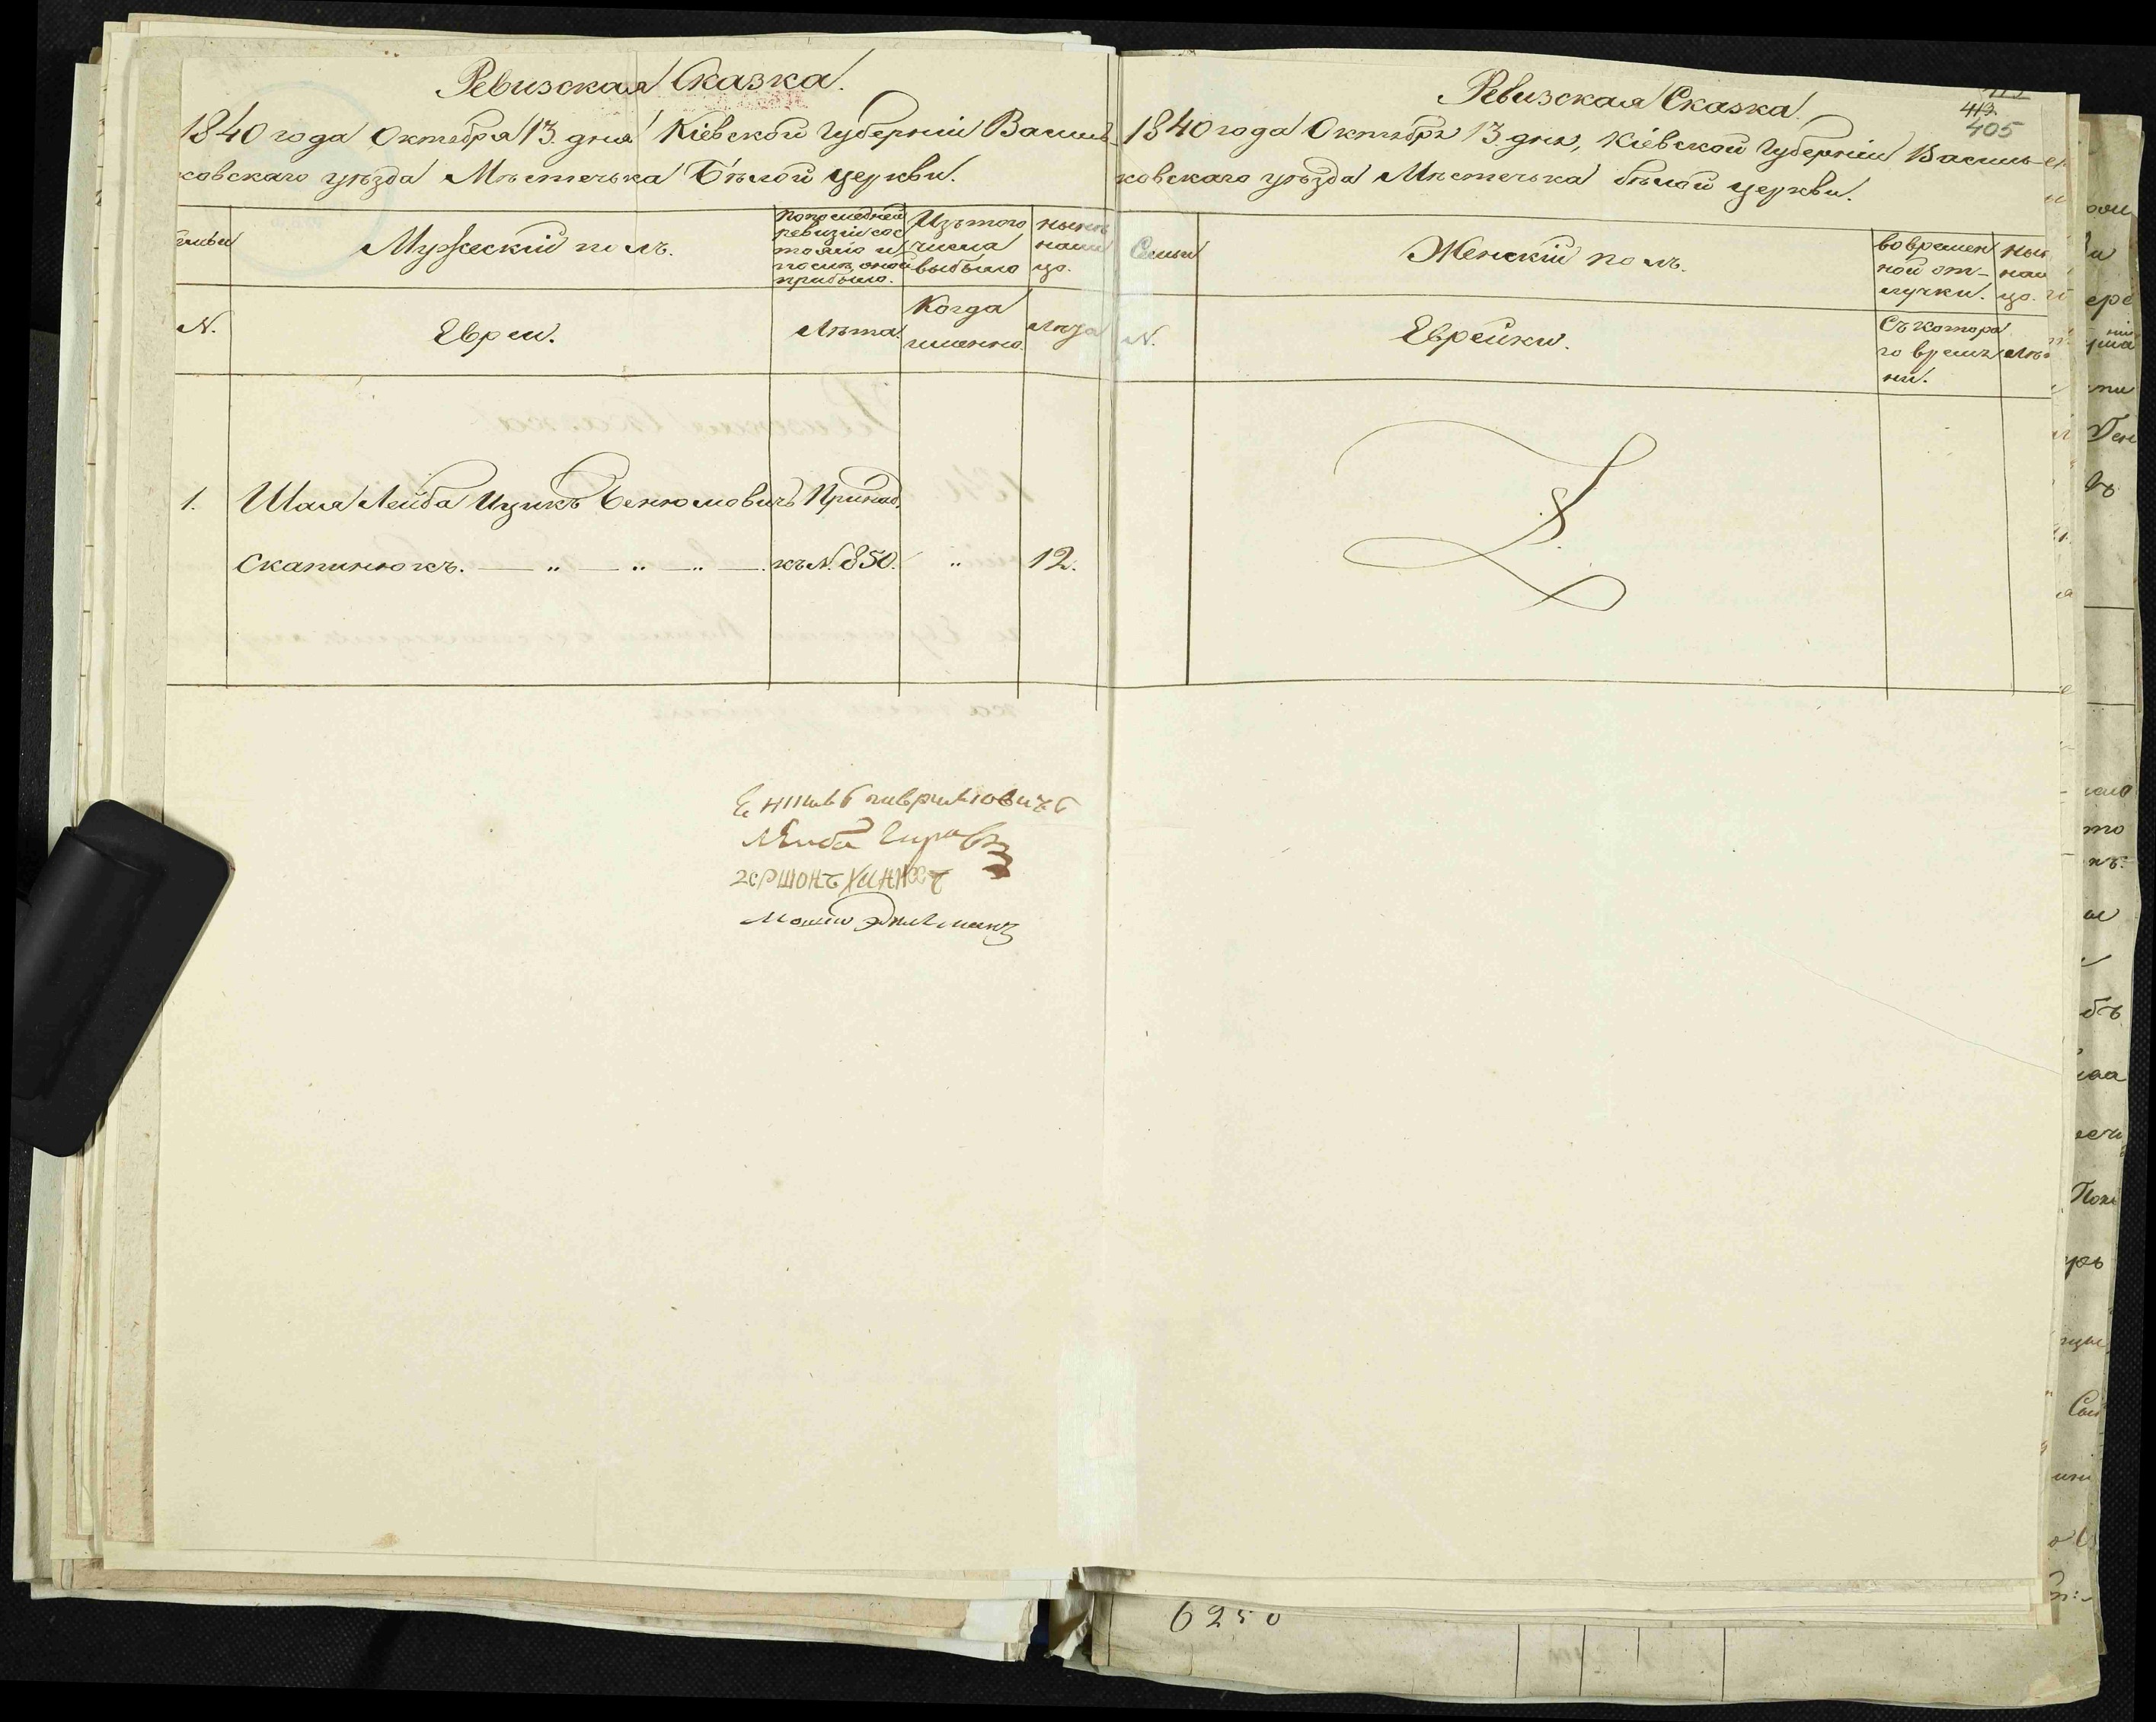 Ревизская Сказка.
1840 года Октября 13. дня Кіевской Губерніи Василь-
ковскаго уѣзда Мѣстечька Бѣлой церкви.
Мужескій полъ.
По последней
ревизіи сос
тояло и
послѣ оной
прибыло.
Изъ того
числа
выбыло
нынѣ
нали
цо.
N.
Евреи.
Лѣта.
Когда
именно.
Лѣта
1.
Шая Лейба Ицикъ Бенюмовичъ
Принад.
Скапинюкъ. — „ — „ — „ —
къ N. 850.
„
12.
Лейба
гершонъ
Мошко
Ревизская Сказка.
413.
405
1840 года Октября 13. дня, Кіевской Губерніи Василь-
ковскаго уѣзда Мѣстечька бѣлой церкви.
Семьи
Женскій полъ.
во времен
ной от-
лучки.
нын
нали
цо.
N.
Еврейки.
Съ которо
го време
ни.
Лѣт
6250